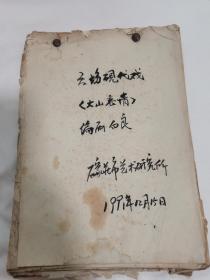 六场现代戏
《大山忠情》
编剧 白良
艺术研究所
1991年12月15日